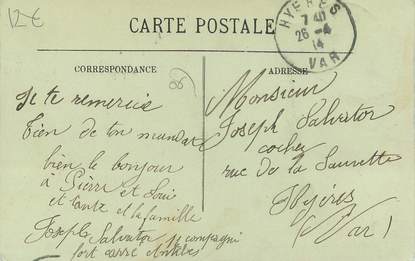 12€
CARTE POSTALE
HYERES
7 40
26 - 4
14
VAR
CORRESPONDANCE
Je te remercis
bien de ton mandat
bien le bonjour
à Pierre et Loui
et tante et la famille
Joseph Salvator
fort carré Antibes
ADRESSE
Monsieur
Joseph Salvator
cocher
rue de la
Hyéres
(Var)